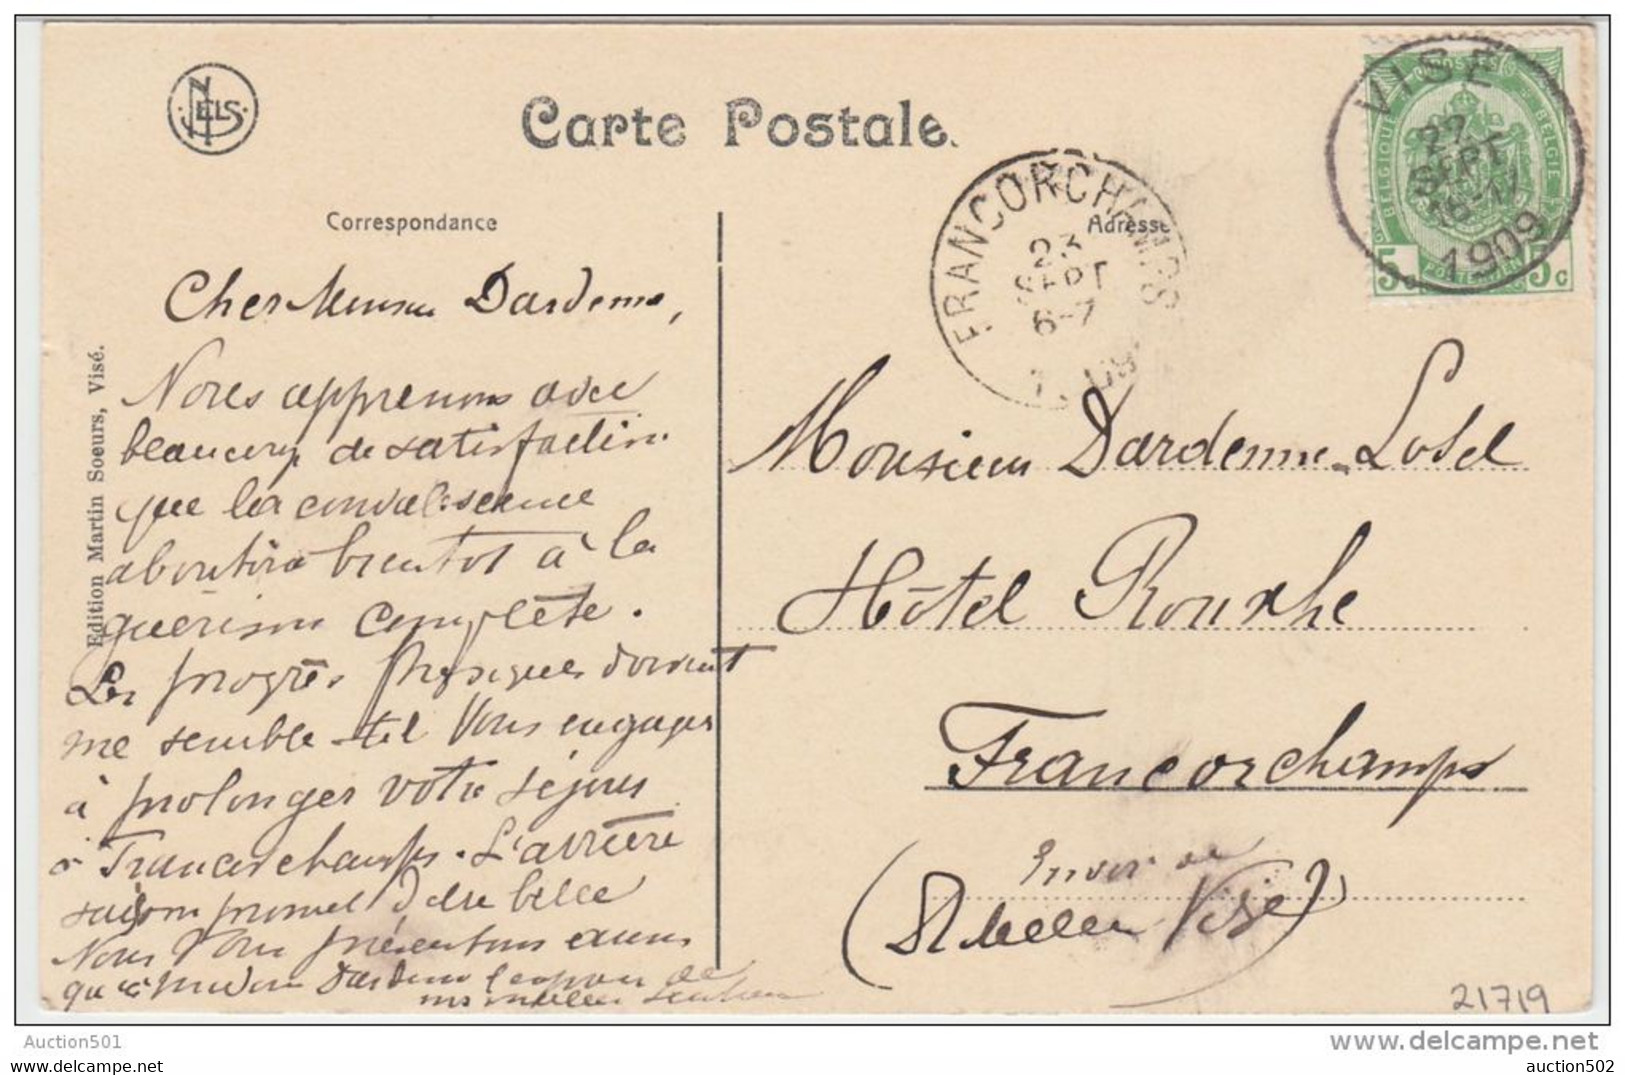 NELS
Carte Postale
Correspondance
Adresse
VISÉ
22
SEPT
16-17
1909
BELGIQUE
POSTES
BELGIË
POSTERIJEN
5c
5c
FRANCORCHAMPS
23
SEPT
6-7
Edition Martin Soeurs, Visé.
Cher Monsieur Dardenne,
Nous apprenons avec
beaucoup de satisfaction
que la convalescence
aboutira bientot à la
guérison complète.
Les progrès physiques doivent
me semble-t-il Vous engager
à prolonger votre séjour
à Francorchamps. L'arrière
saison promet d'être belle
Nous Vous présentons ainsi
qu'à Madame Dardenne l'expression de
nos meilleurs sentiments
Monsieur Dardenne-Losel
Hôtel Rouxhe
Francorchamps
Envoi de
Visé)
21719
Auction501
www.delcampe.net
auction502